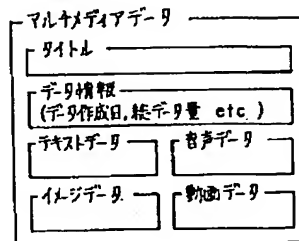 マルチメディアデータ
タイトル
データ情報
(データ作成日,総データ量 etc.)
テキストデータ 音声データ
イメージデータ 動画データ